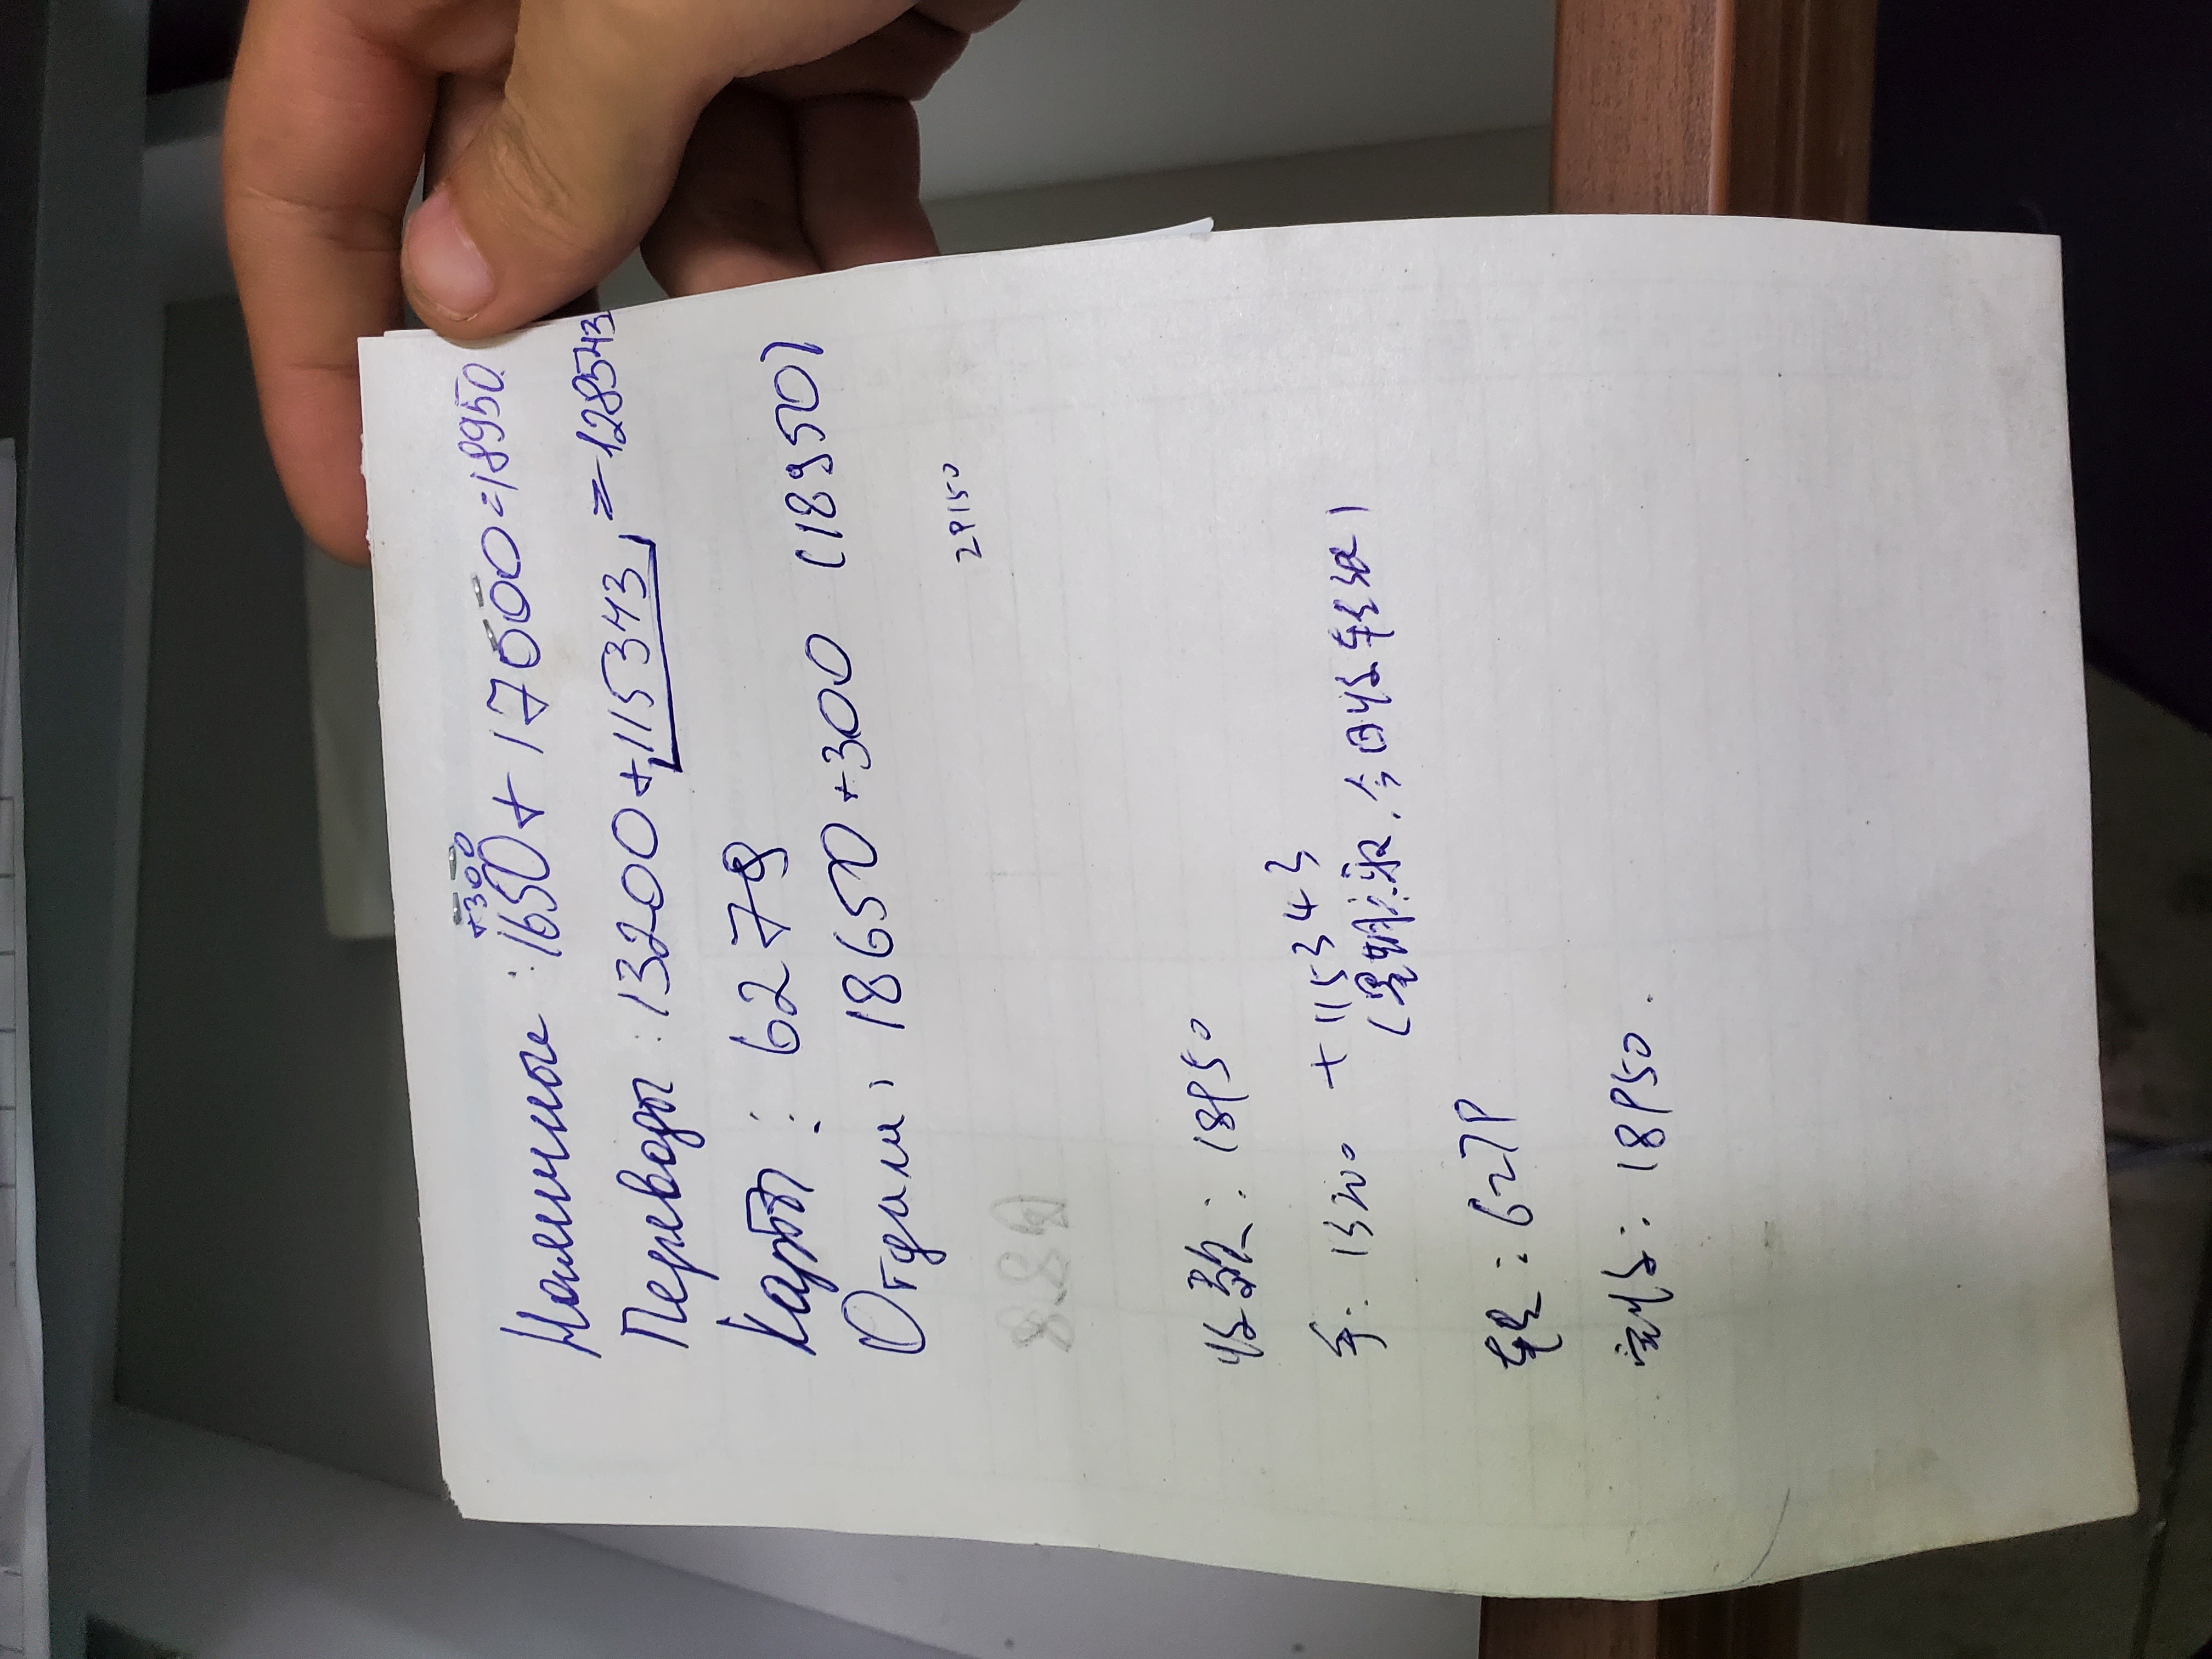 +300
Наличные : 1650 + 17000 = 18950
Переводы : 13200 + 115343 = 128543
Карты : 6279
Отдали : 18650 + 300 (18950)
29150
收款: 18950
手: 13200 + 115343
(星期六取.今日收轻纸)
轻: 6279
实收: 18950.